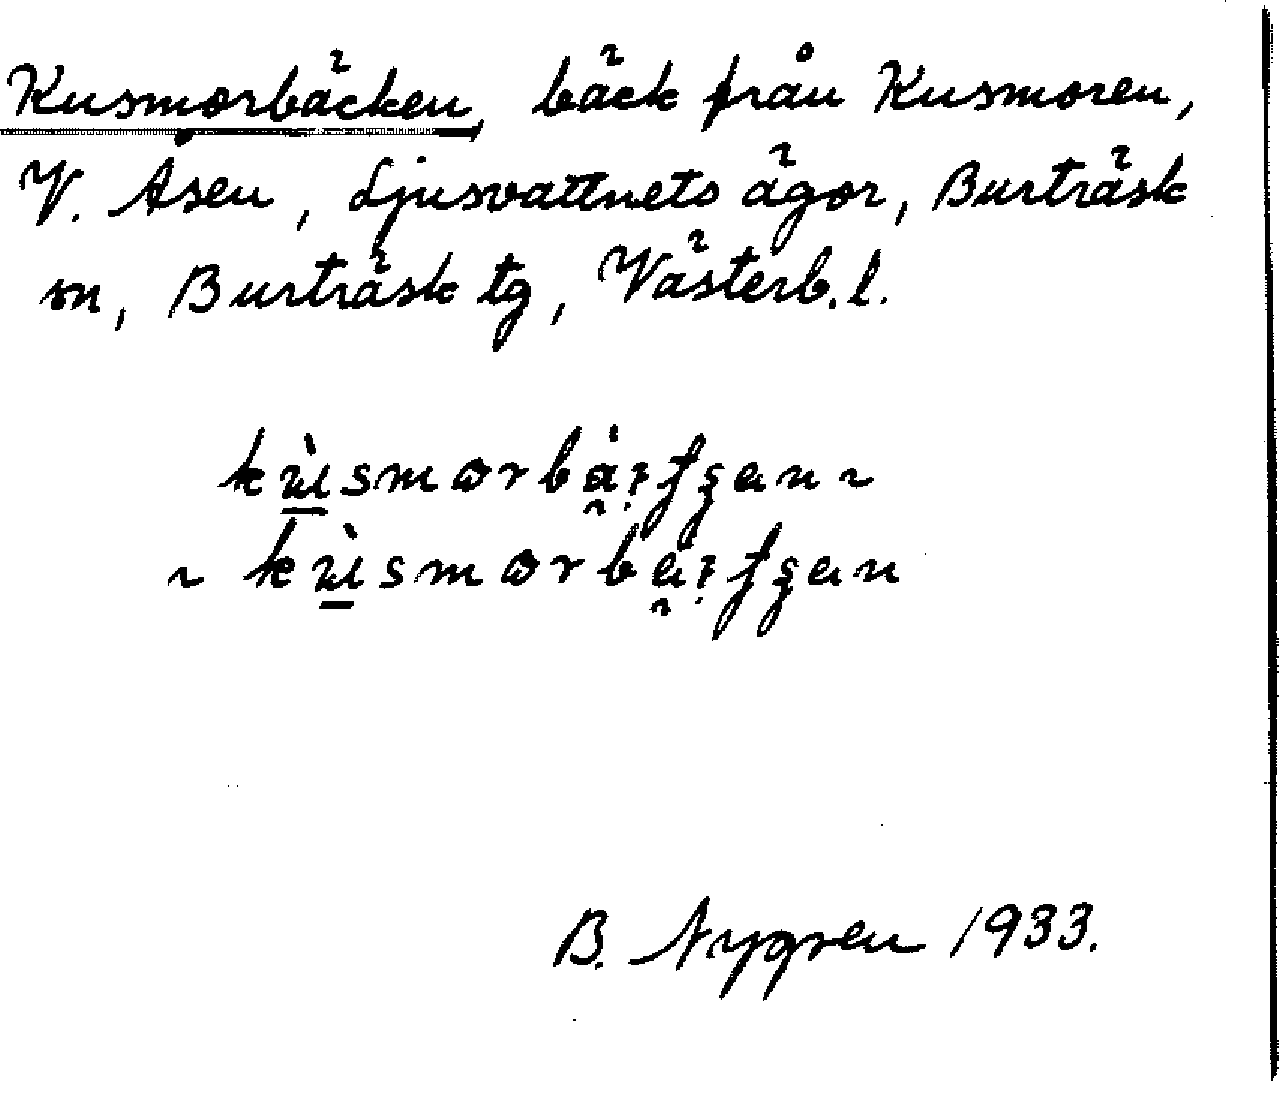 Kusmorbäcken, bäck från Kusmoren,
V. Åsen, Ljusvattnets ägor, Burträsk
sn, Burträsk tg, Västerb. l.
B. Nygren 1933.